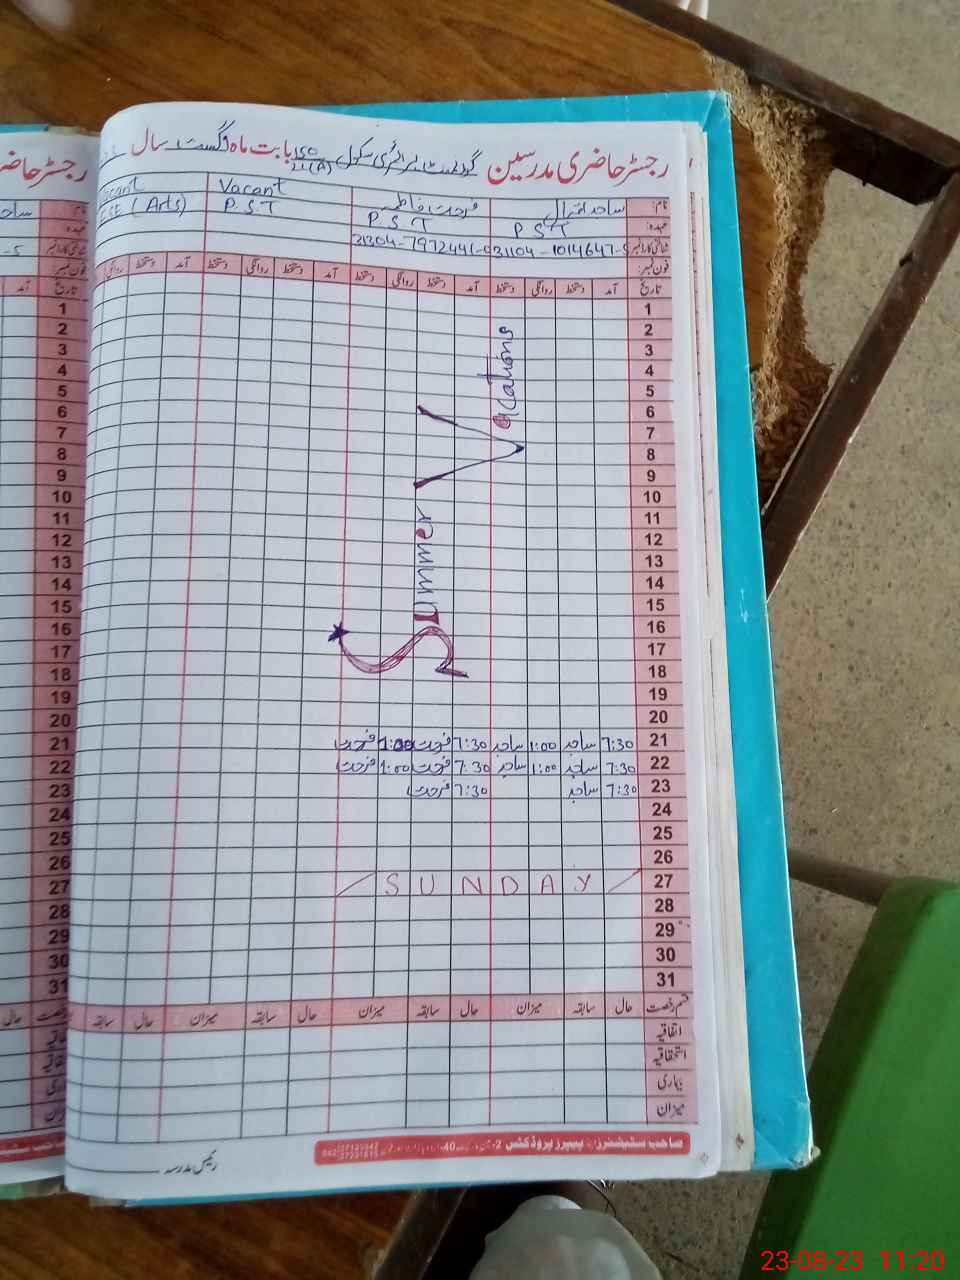 رجسٹر حاضری مدرسین گورنمنٹ پرائمری سکول 150 بابت ماہ اگست سال
نام: ساجد اقبال فرحت فاطمہ Vacant
عہدہ: P.S.T P.S.T P.S.T ESE (Arts)
شناختی کارڈ نمبر 31104-1014647-5 31304-7972441-0
فون نمبر:
تاریخ آمد دستخط روانگی دستخط آمد دستخط روانگی دستخط آمد دستخط روانگی دستخط آمد دستخط روانگی
1
2
3
4
5
6
7
8
9
10
11
12
13
14
15
16
17
18
19
20
Summer Vacations
21 7:30 ساجد 1:00 ساجد 7:30 فرحت 1:00 فرحت
22 7:30 ساجد 1:00 ساجد 7:30 فرحت 1:00 فرحت
23 7:30 ساجد 7:30 فرحت
24
25
26
27 SUNDAY
28
29
30
31
قسم رخصت حال سابقہ میزان حال سابقہ میزان حال سابقہ میزان حال سابقہ
اتفاقیہ
استحقاقیہ
بیماری
میزان
صاحب سٹیشنرز اینڈ پیپرز پروڈکٹس
رئیس مدرسہ
رجسٹر حاضری
23-08-23 11:20